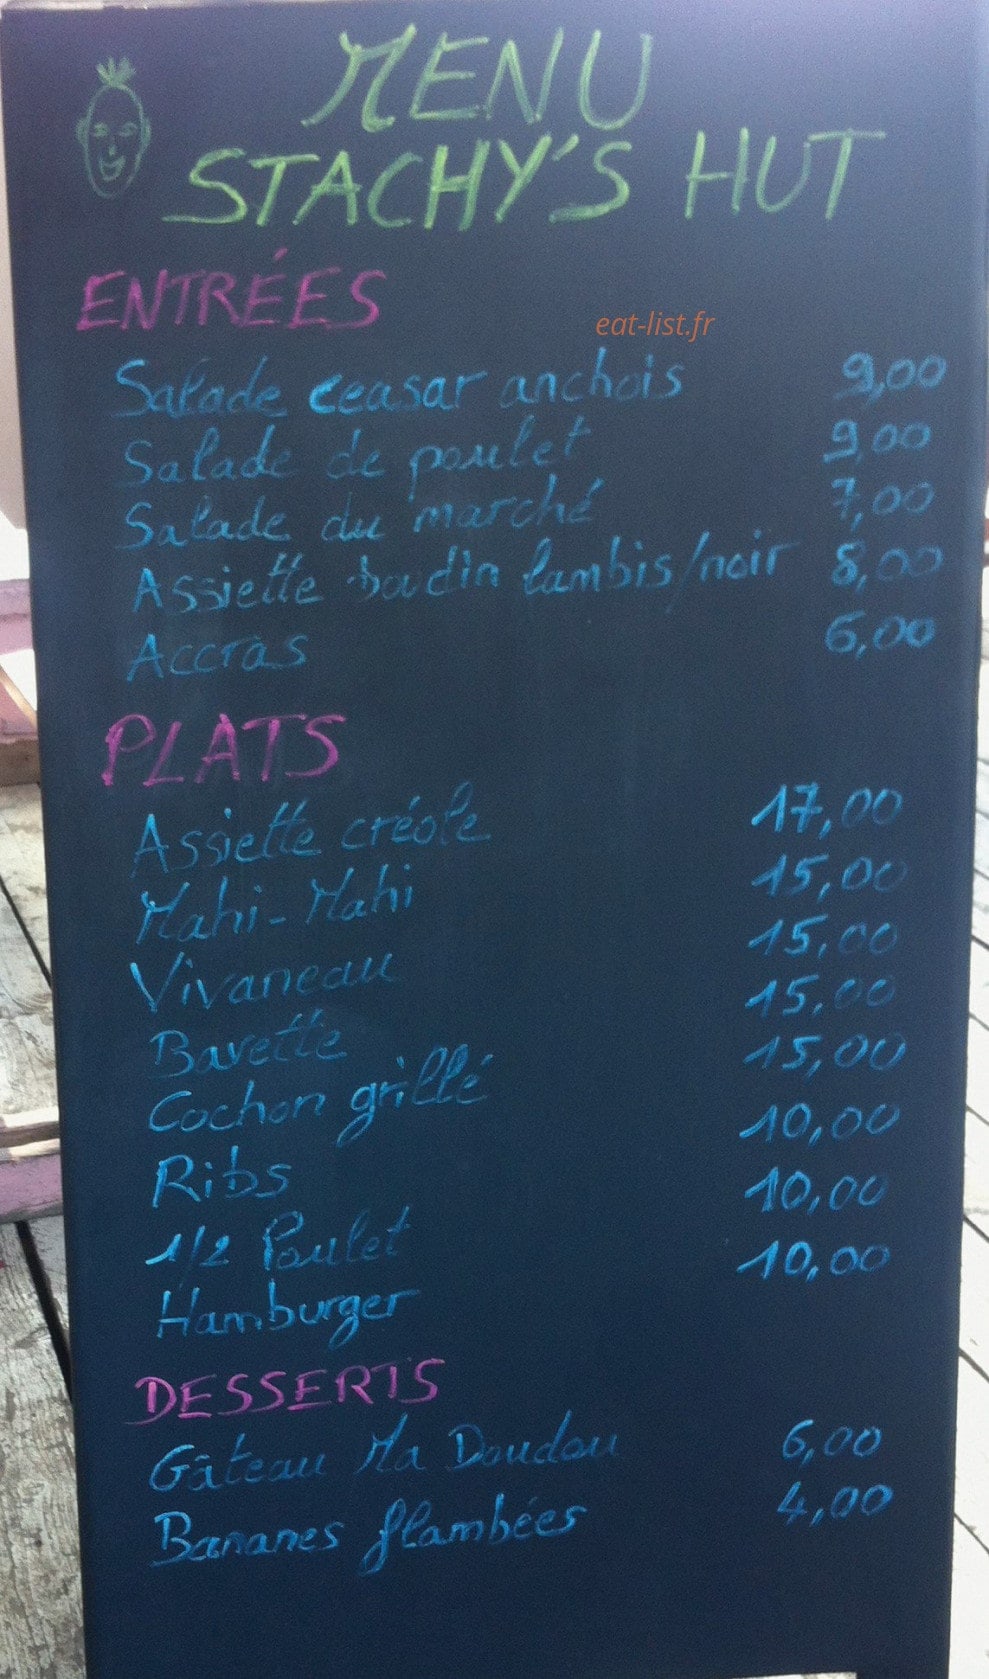 MENU
STACHY'S HUT
ENTRÉES
eat-list.fr
Salade ceasar anchois 9,00
Salade de poulet 9,00
Salade du marché 7,00
Assiette boudin lambis/noir 8,00
Accras 6,00
PLATS
Assiette créole 17,00
Mahi-Mahi 15,00
Vivaneau 15,00
Bavette 15,00
Cochon grillé 15,00
Ribs 10,00
1/2 Poulet 10,00
Hamburger 10,00
DESSERTS
Gâteau Ma Doudou 6,00
Bananes flambées 4,00